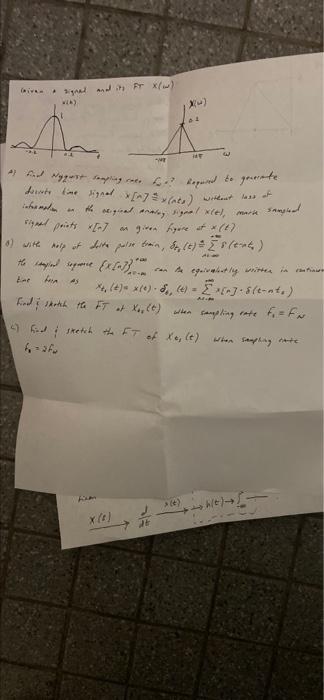 Given a signal and its FT X(ω)
x(t)
X(ω)
1
0.2
-0.2 0.2 t
-10π 10π ω
A) Find Nyquist sampling rate F_N? Required to generate
discrete time signal x[n] ≜ x(nt_s) without loss of
information in the original analog signal x(t), mark sampled
signal points x[n] on given figure of x(t)
B) with help of delta pulse train, δ_ts(t) ≜ Σ δ(t-nt_s)
the sampled sequence {x[n]} can be equivalently written in continuous
time form as
x_ts(t) = x(t)·δ_ts(t) = Σ x[n]·δ(t-nt_s)
Find & sketch the FT of x_ts(t) when sampling rate f_s = F_N
C) Find & sketch the FT of x_ts(t) when sampling rate
f_s = 2F_N
x(t) → d/dt → h(t) → ∫